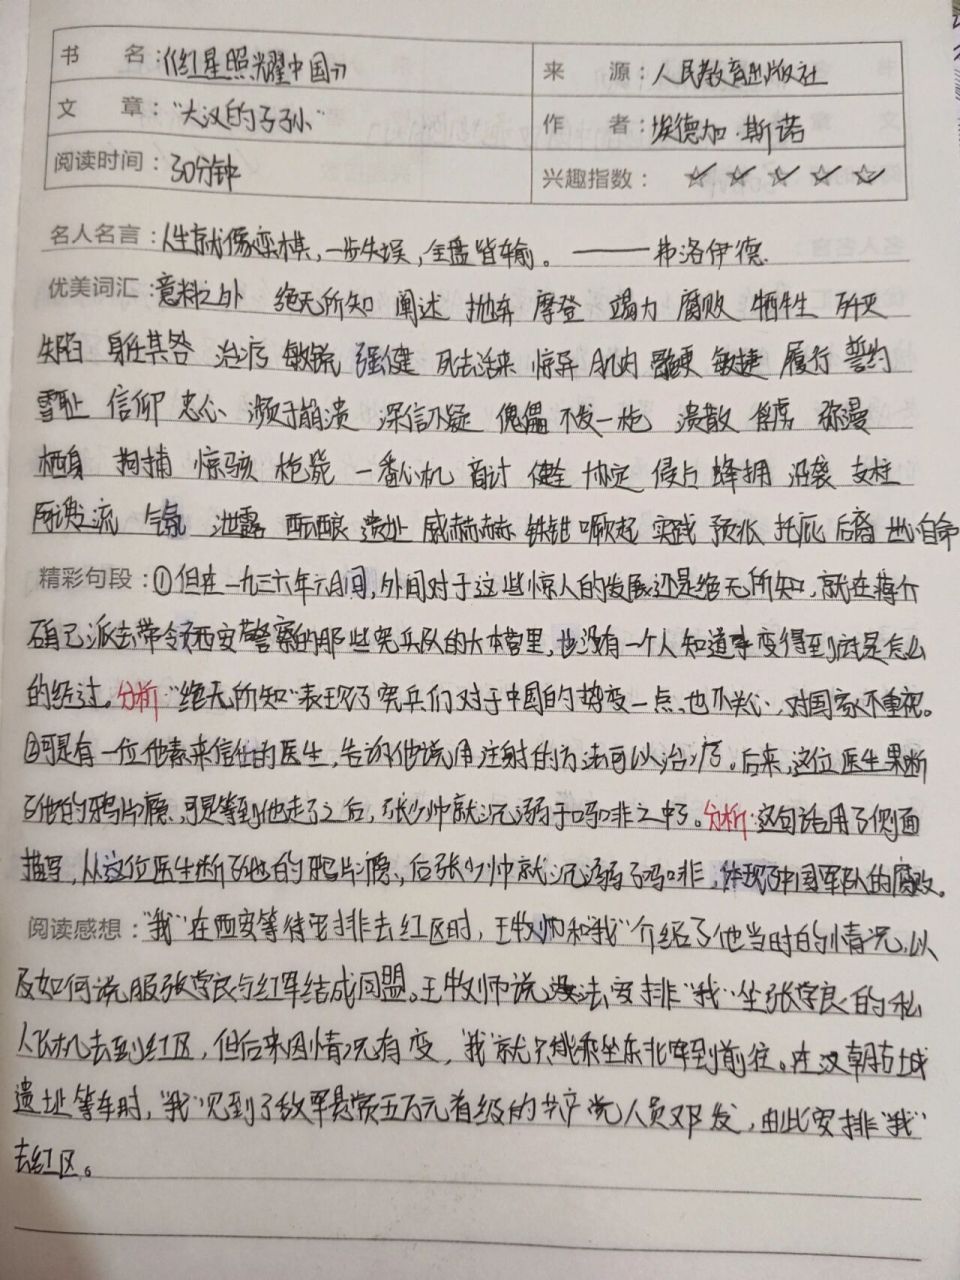 书 名：《红星照耀中国》 来 源：人民教育出版社
文 章："大汉的子孙" 作 者：埃德加·斯诺
阅读时间：30分钟 兴趣指数：☆ ☆ ☆ ☆ ☆
名人名言：人生就像弈棋，一步失误，全盘皆输。——弗洛伊德
优美词汇：意料之外 绝无所知 阐述 抛弃 摩登 竭力 腐败 牺牲 歼灭
失陷 身任其咎 治疗 敏锐 强健 死去活来 惊异 肌肉 敏捷 履行 誓约
雪耻 信仰 忠心 濒于崩溃 深信不疑 傀儡 不发一枪 溃散 俘虏 弥漫
栖身 拘捕 惊骇 枪毙 一番心机 商讨 健全 协定 侵占 蜂拥 沿袭 支柱
气氛 泄露 酝酿 遗址 威赫赫 铁钳 崛起 实践 预兆 托庇 后裔
精彩句段：①但在一九三六年六月间，外间对于这些惊人的发展还是绝无所知，就在蒋介
石自己派去带领西安警察的那些宪兵队的大本营里，也没有一个人知道事变得到底是怎么
的经过。分析："绝无所知"表现了宪兵们对于中国的势变一点、也不关心，对国家不重视。
②可是有一位他素来信任的医生，告诉他说用注射的方法可以治疗。后来，这位医生果断
了他的鸦片瘾，可是等到他走了之后，张少帅就沉溺于吗啡之中了。分析：这句话用了侧面
描写，从这位医生断了他的鸦片瘾，后张少帅就沉溺了吗啡，体现了中国军队的腐败。
阅读感想："我"在西安等待安排去红区时，王牧师和"我"介绍了他当时的情况，以
及如何说服张学良与红军结成同盟。王牧师说没法安排"我"坐张学良的私
人飞机去到红区，但后来因情况有变，"我"就只能乘坐东北军到前往。在汉朝古城
遗址等车时，"我"见到了敌军悬赏五万元首级的共产党人员邓发，由此安排"我"
去红区。